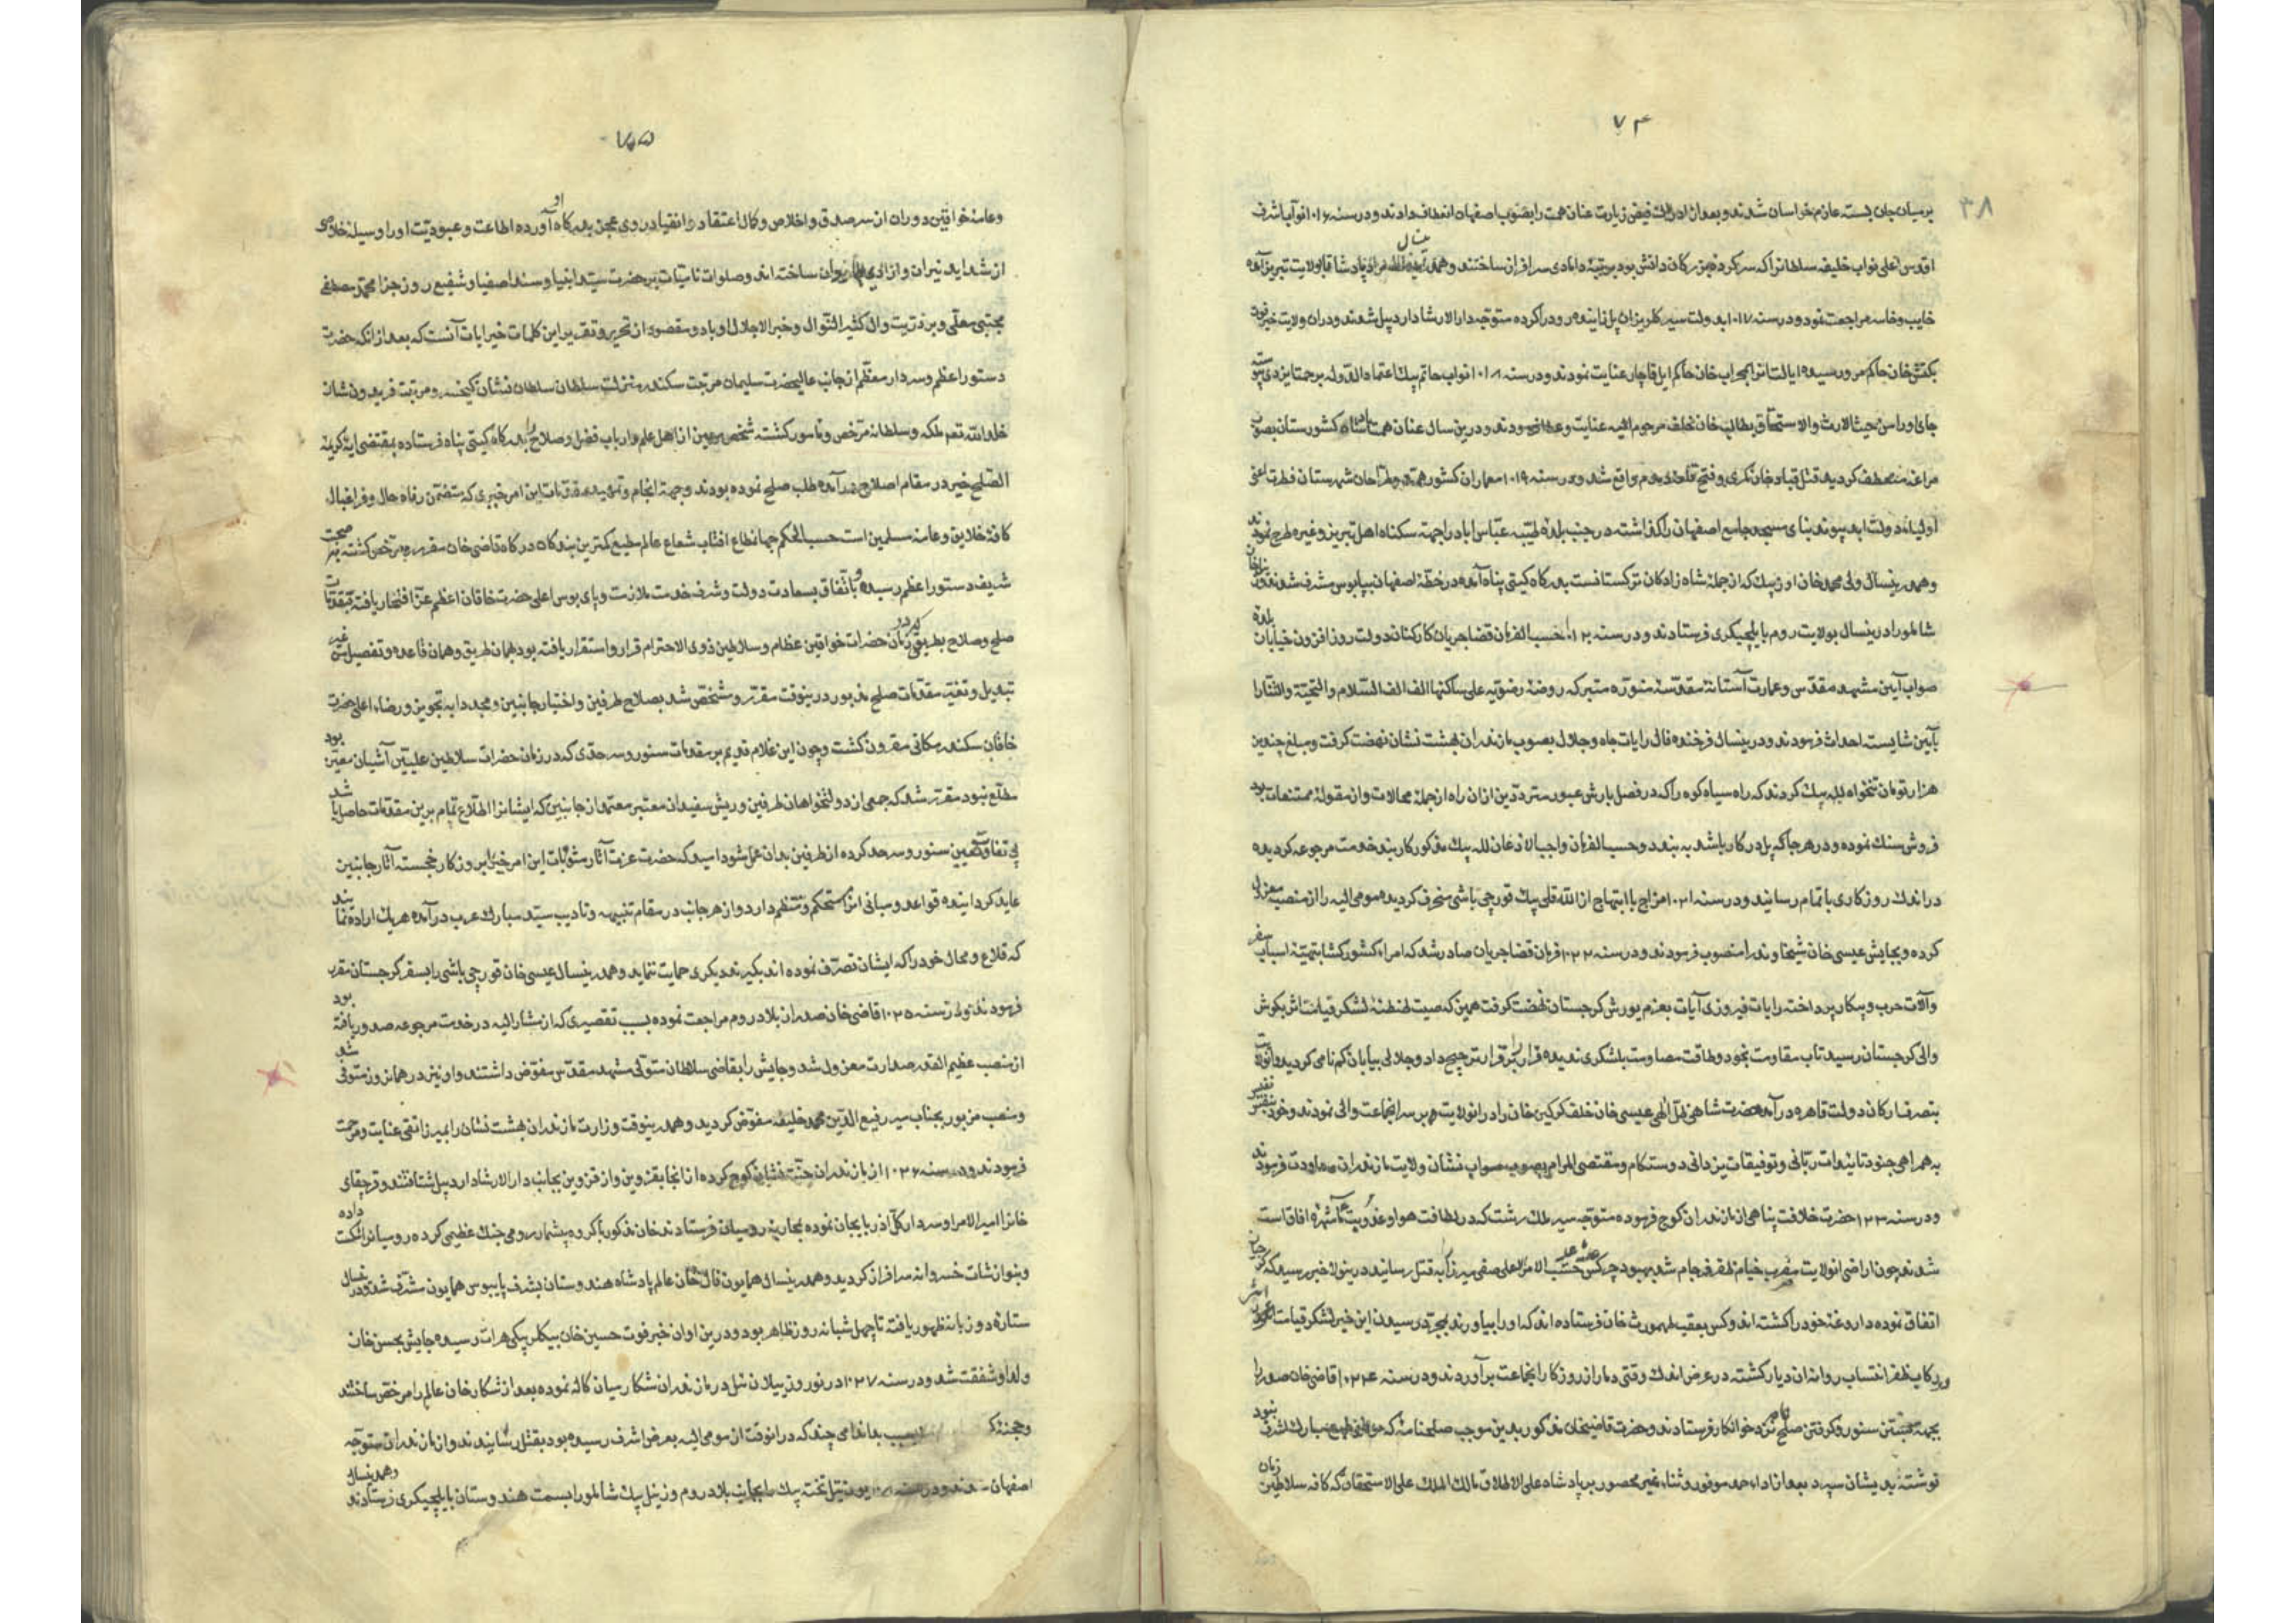 ۷۴
۳۸
بر میان جان بسته عازم خراسان شدند و بعد از ادراک فیض زیارت عنان همت را بصوب اصفهان انعطاف دادند و در سنه ۱۰۱۶ نواب اشرف
اقدس اعلی نواب خلیفه سلطانرا که سرکرده بود برتبه دامادی سرافراز ساختند و همدرینسال مراد پاشا تا بولایت تبریز آمده
خایب و خاسر مراجعت نمود و در سنه ۱۰۱۷ بدولت سیر کلریزان پل زاینده رود را کرده متوجه دار الارشاد اردبیل شدند و در آن ولایت خبر
بکتش خان حاکم مرو رسیده ایالت انرا بمحراب خان حاکم ایل قاجار عنایت نمودند و در سنه ۱۰۱۸ نواب حاتم بیک اعتماد الدوله برحمت ایزدی
جای او را من حیث الارث و الاستحقاق بطالب خان خلف مرحوم الیه عنایت و عطا فرمودند و درین سال عنان همت کشورستان بصوب
مراغه منعطف کردید قتل قباد خان مکری و فتح قلعه دمدم واقع شد و در سنه ۱۰۱۹ معماران کشور همت و طراحان شهرستان فطرت اعنی
اولیاء دولت ابد پیوند بنای مسجد جامع اصفهان را گذاشته در جنب بلده طیبه عباس اباد را جهة سکناء اهل تبریز و غیره طرح نمودند
و همدرینسال ولی محمد خان اوزبک که از جمله شاه زادکان ترکستانست بدرکاه کیتی پناه آمده در خطه اصفهان بپابوس مشرف شدند و
شاملو را درینسال بولایت روم بایلچیکری فرستادند و در سنه ۱۰۲۰ حسب الفرمان قضا جریان کارکنان دولت روز افزون خیابان بلده
صواب آیین مشهد مقدس و عمارت آستانه مقدسه منوره متبرکه روضه رضویه علی ساکنها الف الف السلام و التحیة و الثنا را
بآیین شایسته احداث فرمودند و درینسال فرخنده فال رایات جاه و جلال بصوب مازندران بهشت نشان نهضت کرفت و مبلغ چندین
هزار تومان تنخواه لله بیک کردند که راه سیاه کوه را که در فصل بارش عبور مترددین از ان راه از جمله محالات و از مقوله ممتنعات بود
فروش سنک نموده و در هر جا که پل در کار باشد به بندد و حسب الفرمان واجب الاذعان لله بیک مذکور کاربند خدمت مرجوعه کردیده
در اندک روزکاری باتمام رسانید و در سنه ۱۰۲۱ مزاج با ابتهاج از الله قلی بیک قورچی باشی منحرف کردیده مومی الیه را از منصب معزول
کرده و بجایش عیسی خان شیخاوند را منصوب فرمودند و در سنه ۱۰۲۲ فرمان قضا جریان صادر شد که امراء کشورکشا بتهیه اسباب سفر
و آلات حرب و پیکار پرداخته رایات فیروزی آیات بعزم یورش کرجستان نهضت کرفت همین که صیت طنطنه لشکر قیامت اثر بکوش
والی کرجستان رسید تاب مقاومت بخود و طاقت مصاومت بلشکری ندیده فرار را بر قرار ترجیح داد و جلالی بیابان کم نامی کردید و انولایت
بتصرف ارکان دولت قاهره در آمده حضرت شاهی ظل الهی عیسی خان خلف کرکین خان را در انولایت بر سر انجماعت والی نمودند و خود بنفس نفیس
به همراهی جنود تاییدات ربانی و توفیقات یزدانی دوستکام و مقتضی المرام بصوب صواب نشان ولایت مازندران معاودت فرمودند
و در سنه ۱۰۲۳ حضرت خلافت پناهی از مازندران کوچ فرموده متوجه سیر ملک رشت که در لطافت هوا و عذوبت ماء شهره افاقست
شدند چون اراضی انولایت مضرب خیام ظفر فرجام شد بهبود چرکس حسب الامر الاعلی صفی میرزا به قتل رسانید درینولا خبر رسید که
اتفاق نموده داروغه خود را کشته اند و کس بعقب طهمورث خان فرستاده اند که او را بیاورند بمجرد رسیدن این خبر لشکر قیامت اثر
در رکاب ظفر انتساب روانه ان دیار کشته در عرض اندک وقتی دمار از روزکار انجماعت بر آوردند و در سنه ۱۰۲۴ قاضی خان صدر را
بجهة بستن سنور و کرفتن صلح نامه نزد خواندکار فرستادند و حضرت قاضیخان مذکور بدین موجب صلحنامه که موافق طبع مبارک اشرف بود
نوشته بدیشان سپرد بعد از اداء حمد موفور و ثناء غیر محصور بر پادشاه علی الاطلاق مالک الملک علی الاستحقاق که کافه سلاطین زمان
۷۵
و عامه خواقین دوران از سر صدق و اخلاص و کمال اعتقاد و انقیاد روی عجز بدرکاه او آورده اطاعت و عبودیت او را وسیله خلاص
از شداید نیران ساخته اند و صلوات نامیات بر حضرت سید انبیا و سند اصفیا و شفیع روز جزا محمد مصطفی
مجتبی معلی و بر ذریت و ال کثیر النوال و خیر الاجلال او باد و مقصود از تحریر و تقریر این کلمات خیرایات آنست که بعد از انکه حضرت
دستور اعظم و سردار معظم از جانب عالیحضرت سلیمان مرتبت سکندر منزلت سلطان سلطان نشان کیخسرو مرتبت فریدون شان
خلد الله تعم ملکه و سلطانه مرخص و مامور کشته شخص معین از اهل علم و ارباب فضل و صلاح را بدرکاه کیتی پناه فرستاده بمقتضی ایه کریمه
الصلح خیر در مقام اصلاح در آمده طلب صلح نموده بودند و جهة انجام و تمهید مقدمات این امر خیری که متضمن رفاه حال و فراغبال
کافه خلایق و عامه مسلمین است حسب الحکم جهانمطاع افتاب شعاع عالم مطیع کمترین بندکان درکاه قاضی خان مقرر و مرخص کشته بشرف صحبت
شریف دستور اعظم رسیده و باتفاق بسعادت دولت و شرف خدمت ملازمت و پای بوس اعلی حضرت خاقان اعظم عز افتخار یافته مقدمات
صلح و صلاح بطریقی که در زمان حضرات خواقین عظام و سلاطین ذوی الاحترام قرار و استقرار یافته بود بهمان طریق و همان قاعده و تفصیل من غیر
تبدیل و تغییر مقدمات صلح مذبور درینوقت مقرر و مشخص شد بصلاح طرفین و اختیار جانبین و مجددا به تجویز و رضاء اعلی حضرت
خاقان سکندر مکانی مقرون کشت و چون این غلام قدیم بر مقدمات سنور و سرحدی که در زمان حضرات سلاطین علیین آشیان مقرر بود
مطلع نبود مقرر شد که جمعی از دولتخواهان طرفین و ریش سفیدان معتبر معتمد از جانبین که ایشانرا اطلاع تمام برین مقدمات حاصل باشد
بی تفاوت تعیین سنور و سرحد کرده از طرفین بدان عمل شود امید که حضرت عزت آثار مثوبات این امر خیر بروزکار خجسته آثار جانبین
عاید کردانیده قواعد و مبانی انرا مستحکم و منتظم دارد و از هر جانب در مقام تنبیهه و تادیب سید مبارک عرب در آمده هریک اراده نمایند
که قلاع و محال خود را که ایشان تصرف نموده اند بکیرند دیکری حمایت ننماید و همدرینسال عیسی خان قورچی باشی را بسفر کرجستان مقرر
فرمودند و در سنه ۱۰۲۵ قاضی خان صدر از بلاد روم مراجعت نموده بسبب تقصیری که از مشار الیه در خدمت مرجوعه صدور یافته بود
از منصب عظیم القدر صدارت معزول شد و جایش را بقاضی سلطان متولی مشهد مقدس مفوض داشتند و او نیز در همانروز متوفی شد
و منصب مزبور بجناب میر رفیع الدین محمد خلیفه مفوض کردید و همدرینوقت وزارت مازندران بهشت نشان را بمیرزا تقی عنایت و مرحمت
فرمودند و در سنه ۱۰۲۶ از مازندران جنت نشان کوچ کرده از انجا بقزوین و از قزوین بجانب دار الارشاد اردبیل شتافتند و قرچقای
خانرا امیر الامرا و سردار کل آذربایجان نموده بمحاربه رومیان فرستادند خان مذکور با کروه بیشمار رومی جنک عظیمی کرده رومیانرا شکست داده
و بنوازشات خسروانه سرافراز کردید و همدرینسال همایون فال خان عالم پادشاه هندوستان بشرف پایبوس همایون مشرف شد و درینسال
ستاره دو زبانه ظهور یافته تا چهل شبانه روز ظاهر بود و درین اوان خبر فوت حسین خان بیکلر بیکی هرات رسیده جایش بحسن خان
ولد او شفقت شد و در سنه ۱۰۲۷ در نوروز بیلان ئیل در مازندران شکار میان کاله نموده بعد از شکار خان عالم را مرخص ساختند
بسبب بدنامی چند که در انوقت از مومی الیه بعرض اشرف رسیده بود بقتل رسانیدند و از مازندران متوجه
اصفهان شدند و در سنه تخته بیک را بجانب بلاد روم و زینل بیک شاملو را بسمت هندوستان بایلچیکری فرستادند و همدرینسال